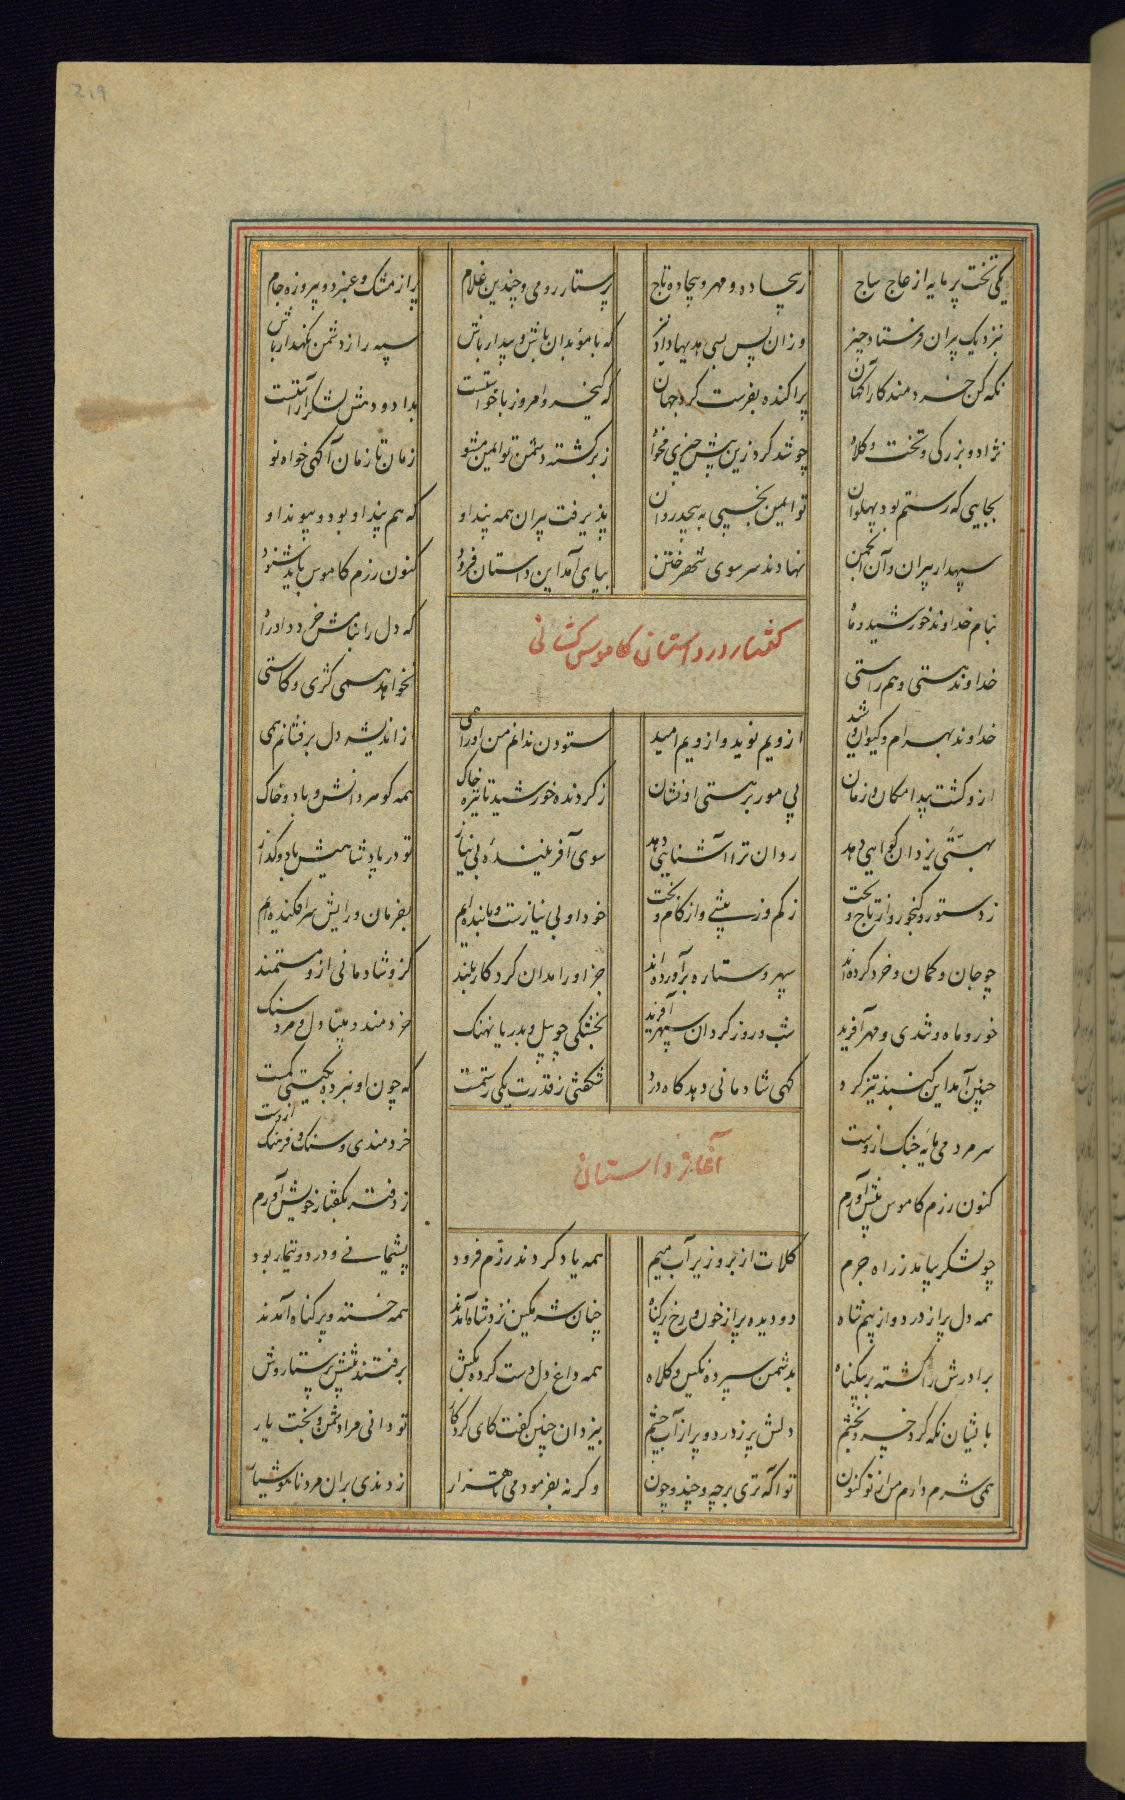 219
یکی تخت پرمایه از عاج ساج
ز بیجاده و مهر و بیجاده تاج
پرستار رومی و چندین غلام
پر از مشک و عنبر دو پیروزه جام
بنزدیک پیران فرستاد چیز
وزان پس بسی هدیها داد نیز
که با موبدان باش و بیدار باش
سپه را ز دشمن نگهدار باش
نگه کن خردمند کارآگهان
پراکنده بفرست گرد جهان
که کیخسرو امروز با خواستست
بداد و دهش لشکر آراستست
نژاد و بزرگی و تخت و کلاه
چو شد گرد ازین بیش چیزی مخواه
ز برگشته دشمن تو ایمن مشو
زمان تا زمان آگهی خواه نو
بجایی که رستم بود پهلوان
تو ایمن بخسپی بپیچد روان
پذیرفت پیران همه پند او
که هم پند او بود و پیوند او
سپهدار پیران و آن انجمن
نهادند سر سوی شهر ختن
بپای آمد این داستان فرود
کنون رزم کاموس باید شنود
گفتار در داستان کاموس کشانی
بنام خداوند خورشید و ماه
که دل را بنامش خرد داد راه
خداوند هستی و هم راستی
نخواهد همی کژی و کاستی
خداوند بهرام و کیوان و شید
ازویم نوید و ازویم امید
ستودن ندانم من او را همی
ز اندیشه دل برفشانم همی
ازو گشت پیدا مکان و زمان
پی مور بر هستی او نشان
ز گردنده خورشید تا تیره خاک
همه گوهر و آتش و باد و خاک
بهستی یزدان گوایی دهد
روان ترا آشنایی دهد
سوی آفریننده بی‌نیاز
تو در پادشاهیش باد و گداز
ز دستور و گنجور و از تاج و تخت
ز کم و ز بیشی و از کام و بخت
خود او بی نیازست و ما بنده‌ایم
بفرمان و رایش سرافکنده‌ایم
چو جان و گمان و خرد کرده‌اند
سپهر و ستاره برآورده‌اند
جز او را مدان کردگار بلند
کزو شادمانی ازو مستمند
خور و ماه و تندی و مهر آفرید
شب و روز گردان سپهر آفرید
بخشکی چو پیل و بدریا نهنگ
خردمند و بینا دل و مرد سنگ
چنین آمد این گنبد تیز گرد
گهی شادمانی دهد گاه درد
شگفتی ز قدرت یکی رستمست
که چون او نبرده بگیتی کمست
سر مردمی مایه جنگ ازوست
خردمندی و سنگ و فرهنگ ازوست
آغاز داستان
کنون رزم کاموس پیش آورم
ز دفتر بگفتار خویش آورم
چو لشکر بیامد ز راه جرم
کلات از بر و زیر آب میم
همه یاد کردند رزم فرود
پشیمانی و درد و تیمار بود
همه دل پر از درد و از بیم شاه
دو دیده پر از خون و رخ پر گناه
چنان شرمگین نزد شاه آمدند
همه خسته و پر گناه آمدند
برادرش را کشته بر بیگناه
بدشمن سپرده نگین و کلاه
همه داغ دل دست کرده بکش
برفتند پیشش پرستاروش
بایشان نگه کرد خسرو بخشم
دلش پر ز درد و پر از آب چشم
بیزدان چنین گفت کای کردگار
تو دانی مرا دشمن و بخت یار
همی شرم دارم من از تو کنون
تو آگه‌تری بر چه و چند و چون
وگرنه بفرمودمی تا هزار
زدندی بران مرد ناهوشیار